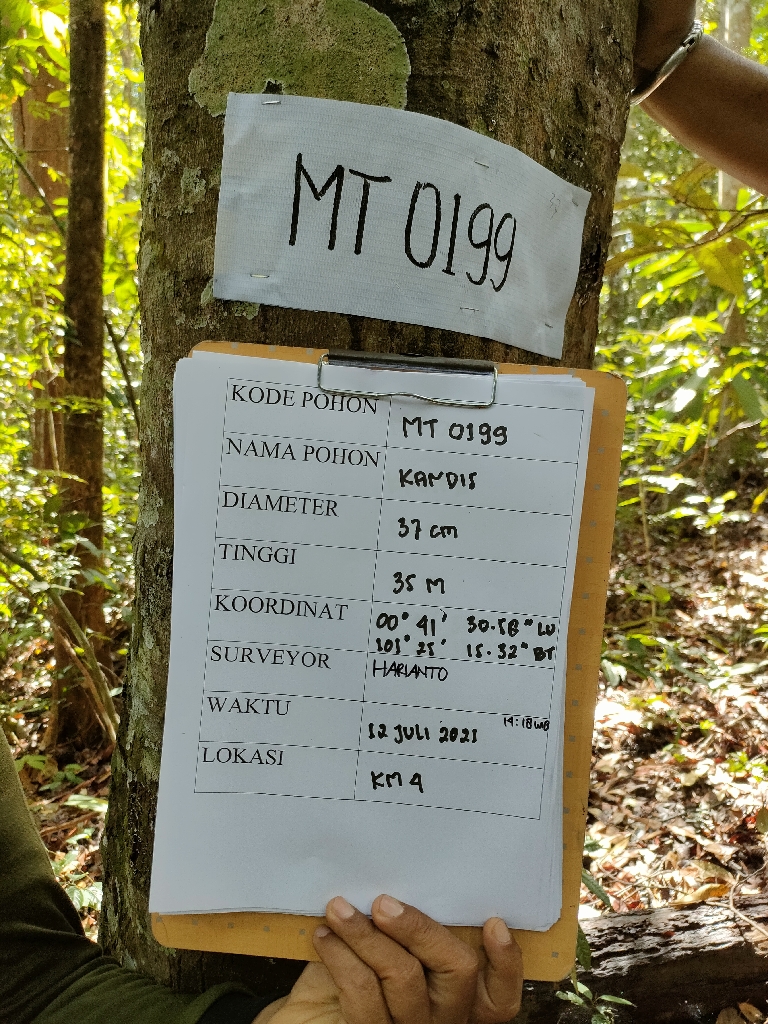 MT 0199
KODE POHON MT 0199
NAMA POHON KANDIS
DIAMETER 37 cm
TINGGI 35 M
KOORDINAT 00° 41' 30.58" LU
101° 25' 15.32" BT
SURVEYOR HARIANTO
WAKTU 12 JULI 2021 14:18 WIB
LOKASI KM 4